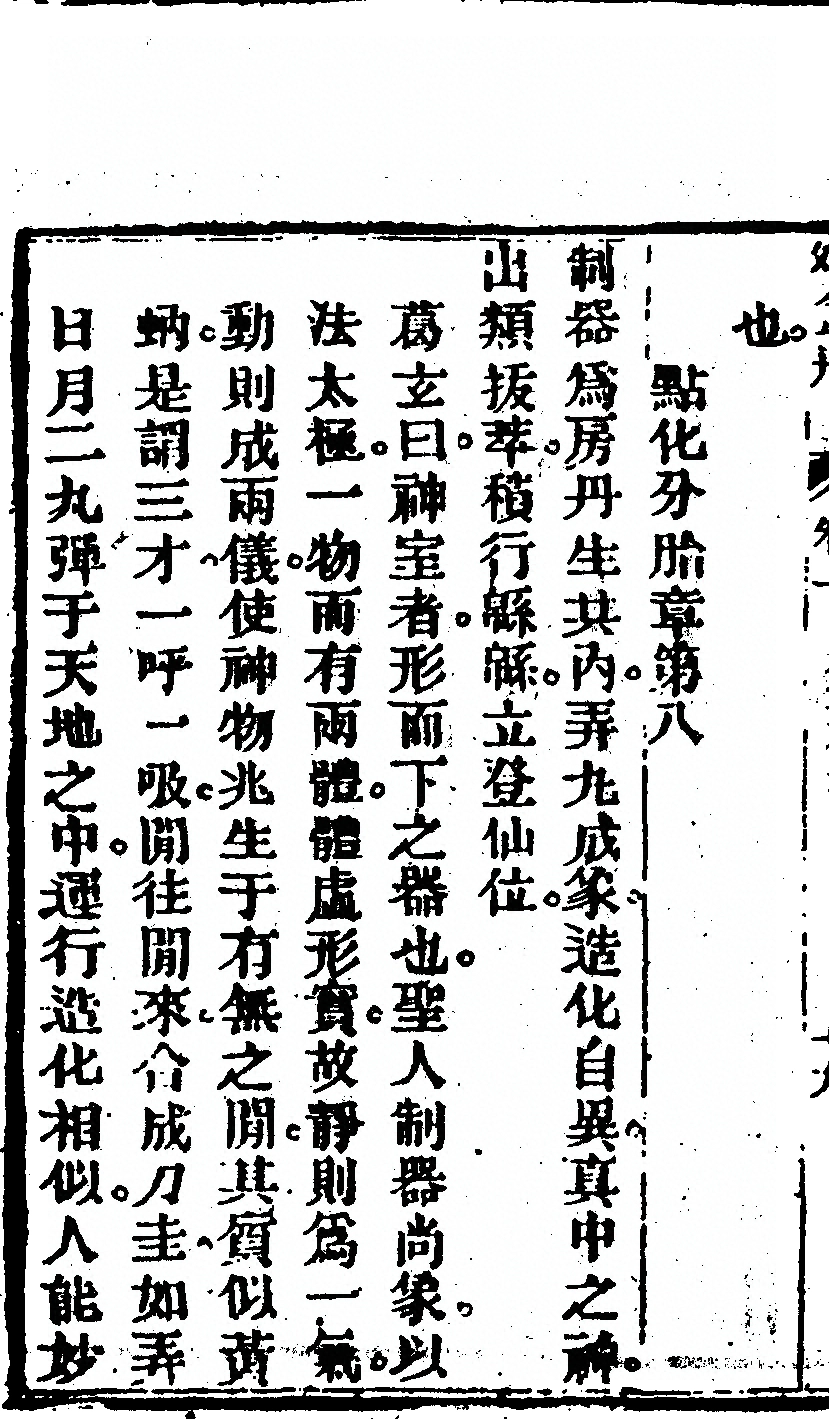 也。
點化分胎章第八
制器爲房丹生其內。弄九成象。造化自異。真中之神。
出類拔萃。積行緜緜。立登仙位。
葛玄曰。神室者。形而下之器也。聖人制器尚象。以
法太極。一物而有兩體。體虛形實。故靜則爲一氣。
動則成兩儀。使神物兆生于有無之閒。其質似黃
蚋。是謂三才。一呼一吸。閒往閒來。合成刀圭。如弄
日月二丸彈于天地之中。運行造化相似。人能妙